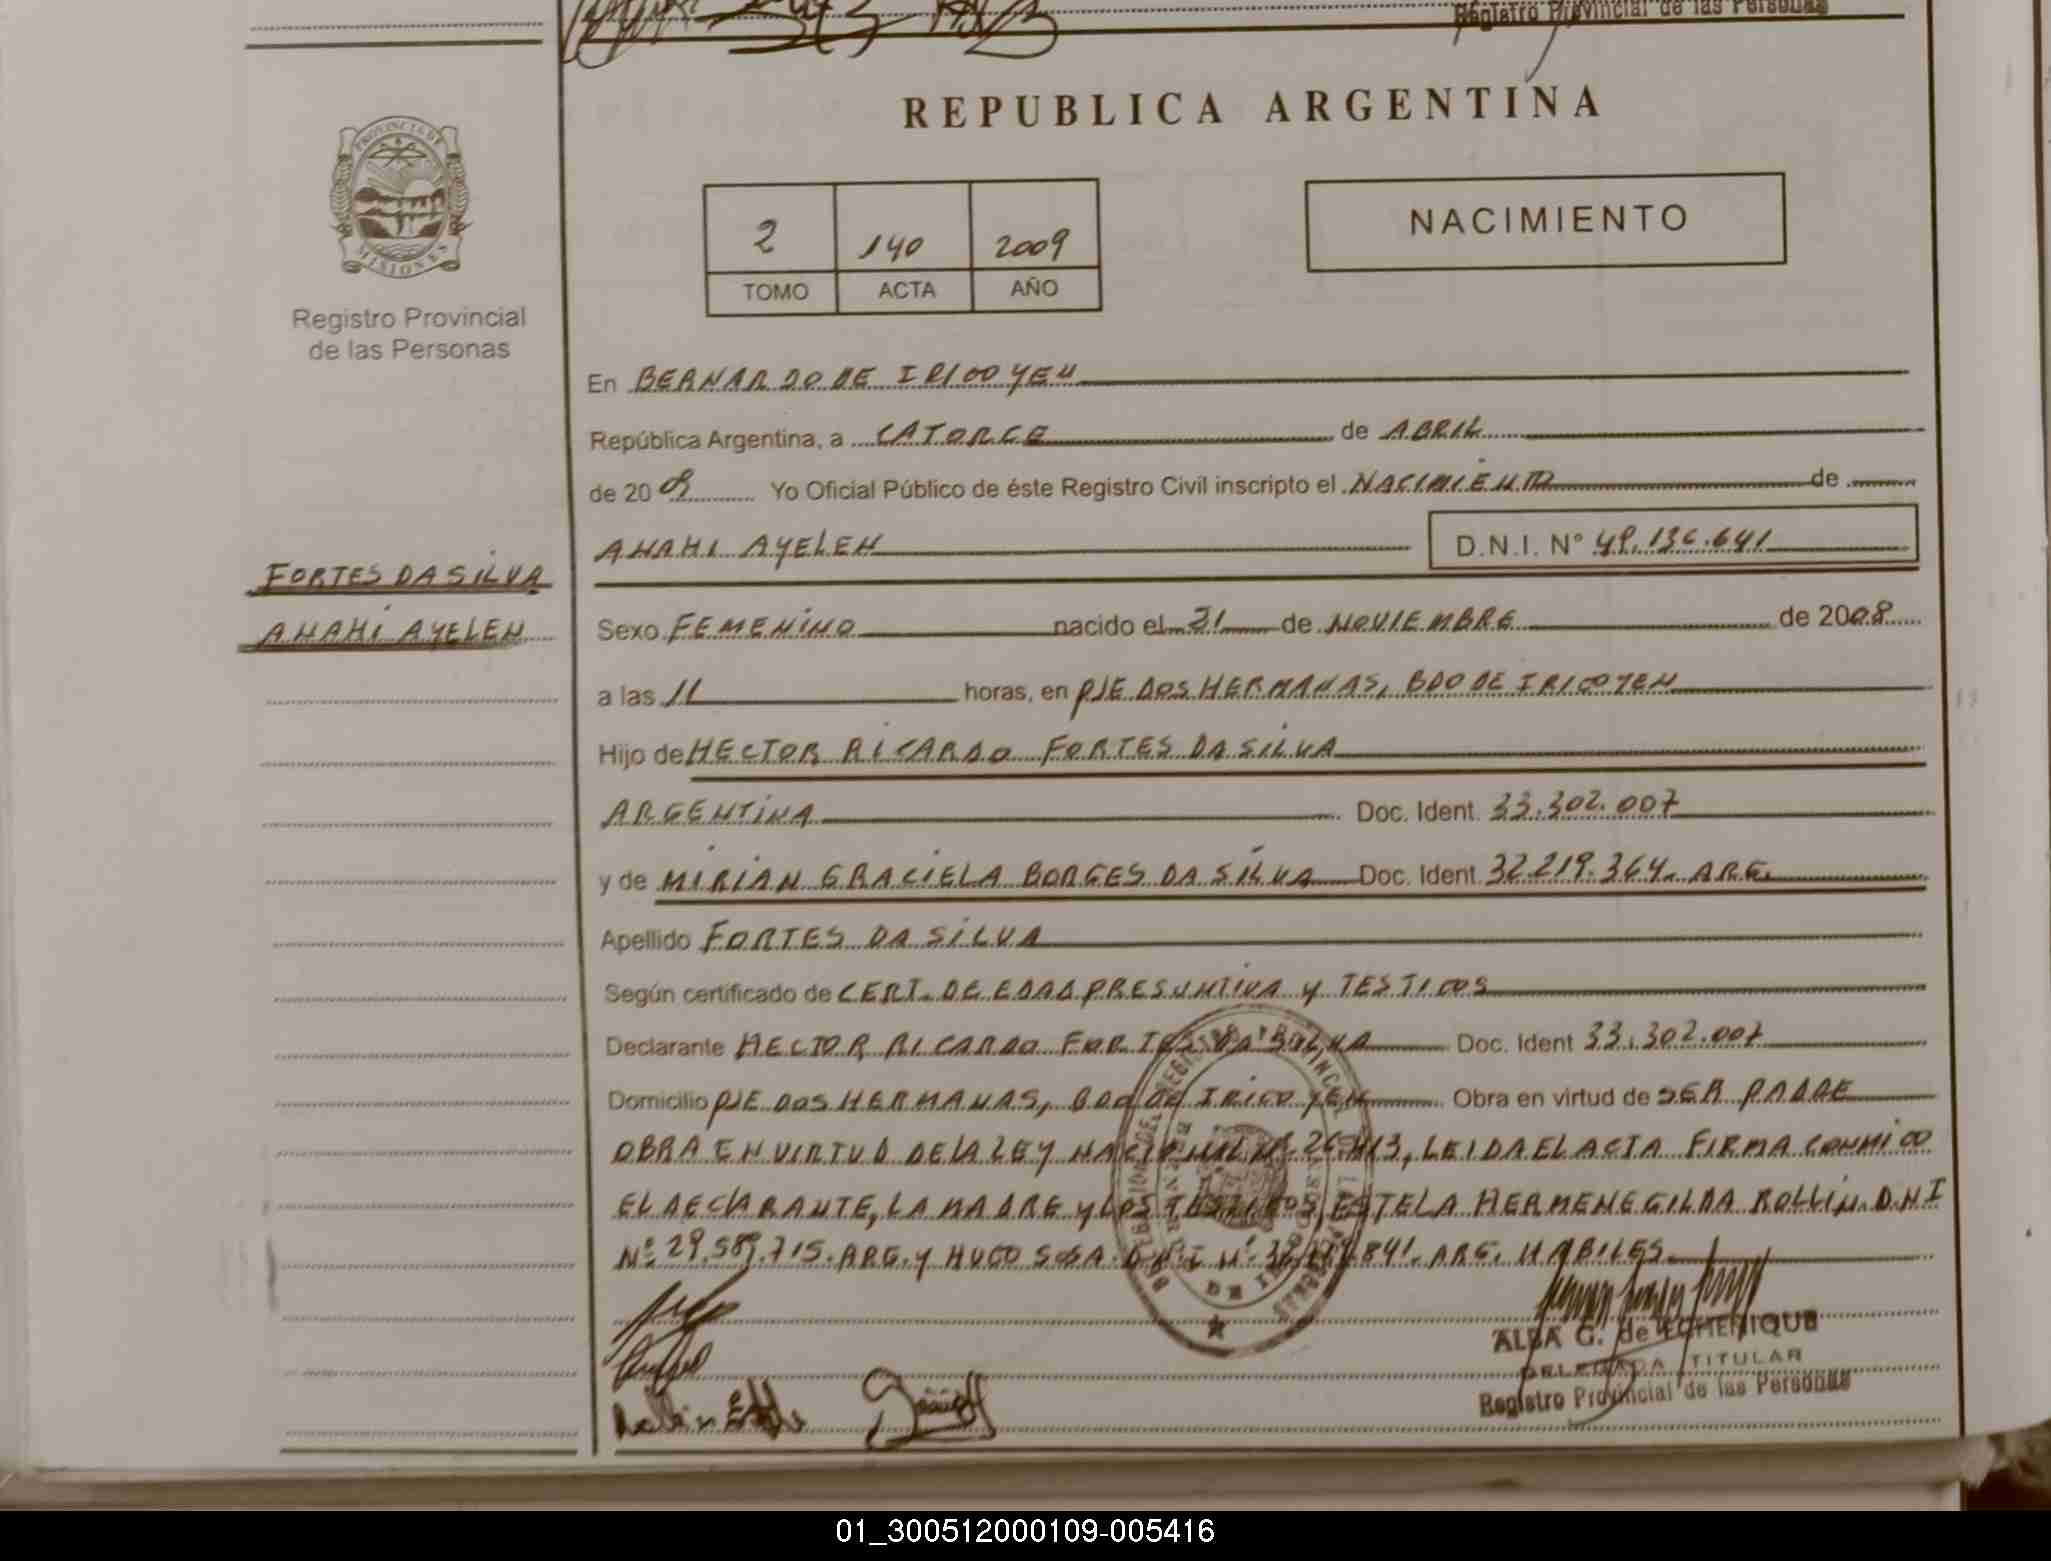 Registro Provincial de las Personas
REPUBLICA ARGENTINA
PROVINCIA DE
MISIONES
Registro Provincial
de las Personas
2 140 2009
TOMO ACTA AÑO
NACIMIENTO
En BERNARDO DE IRIGOYEN
República Argentina, a CATORCE de ABRIL
de 2009 Yo Oficial Público de éste Registro Civil inscripto el NACIMIENTO de
ANAHI AYELEN D.N.I. N° 49.136.641
FORTES DA SILVA
ANAHI AYELEN
Sexo FEMENINO nacido el 21 de NOVIEMBRE de 2008
a las 11 horas, en PJE DOS HERMANAS, BDO DE IRIGOYEN
Hijo de HECTOR RICARDO FORTES DA SILVA
ARGENTINA Doc. Ident. 33.302.007
y de MIRIAN GRACIELA BORGES DA SILVA Doc. Ident. 32.219.364. ARG.
Apellido FORTES DA SILVA
Según certificado de CERT. DE EDAD PRESUNTIVA y TESTIGOS
Declarante HECTOR RICARDO FORTES DA SILVA Doc. Ident 33.302.007
Domicilio PJE DOS HERMANAS, BDO DE IRIGOYEN Obra en virtud de SER PADRE
OBRA EN VIRTUD DE LA LEY NACIONAL Nº 26.413, LEIDA EL ACTA FIRMA CONMIGO
EL DECLARANTE, LA MADRE y LOS TESTIGOS, ESTELA HERMENEGILDA ROLLIN. D.N.I
Nº 29.589.715. ARG. y HUGO SOSA. D.N.I Nº ARG. HABILES.
ALBA G. de ECHENIQUE
DELEGADA TITULAR
Registro Provincial de las Personas
01_300512000109-005416